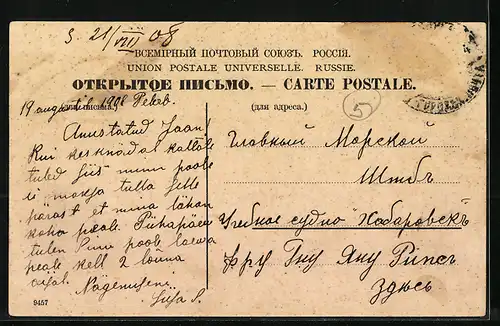 S. 21/VIII 08
ВСЕМІРНЫЙ ПОЧТОВЫЙ СОЮЗЪ. РОССІЯ.
UNION POSTALE UNIVERSELLE. RUSSIE.
ОТКРЫТОЕ ПИСЬМО. — CARTE POSTALE.
19 augustil 1908 Peterb.
(для адреса.)
5
Armstatud Jaan!
Kui kesknädal
tuled siis minu poole
ei tulla selle
pärast et mina lähan
koha peale Pühapäew
tulen Sinu poole laewa
peale kell 2 lõuna
aijal.
Nägemiseni
S.
Главный Морской
Штабъ
Учебное судно "Хабаровскъ"
Яну
Здѣсь
9457